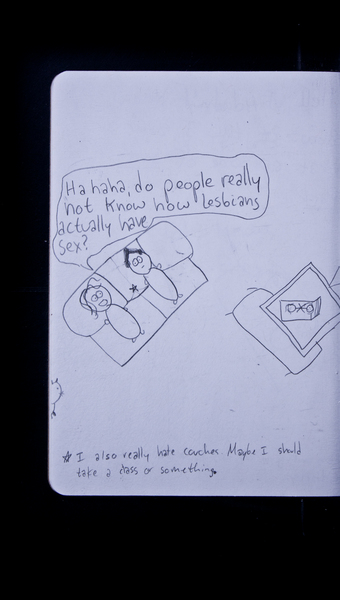 Ha haha, do people really
not know how lesbians
actually have
sex?
* I also really hate couches. Maybe I should
take a class or something.